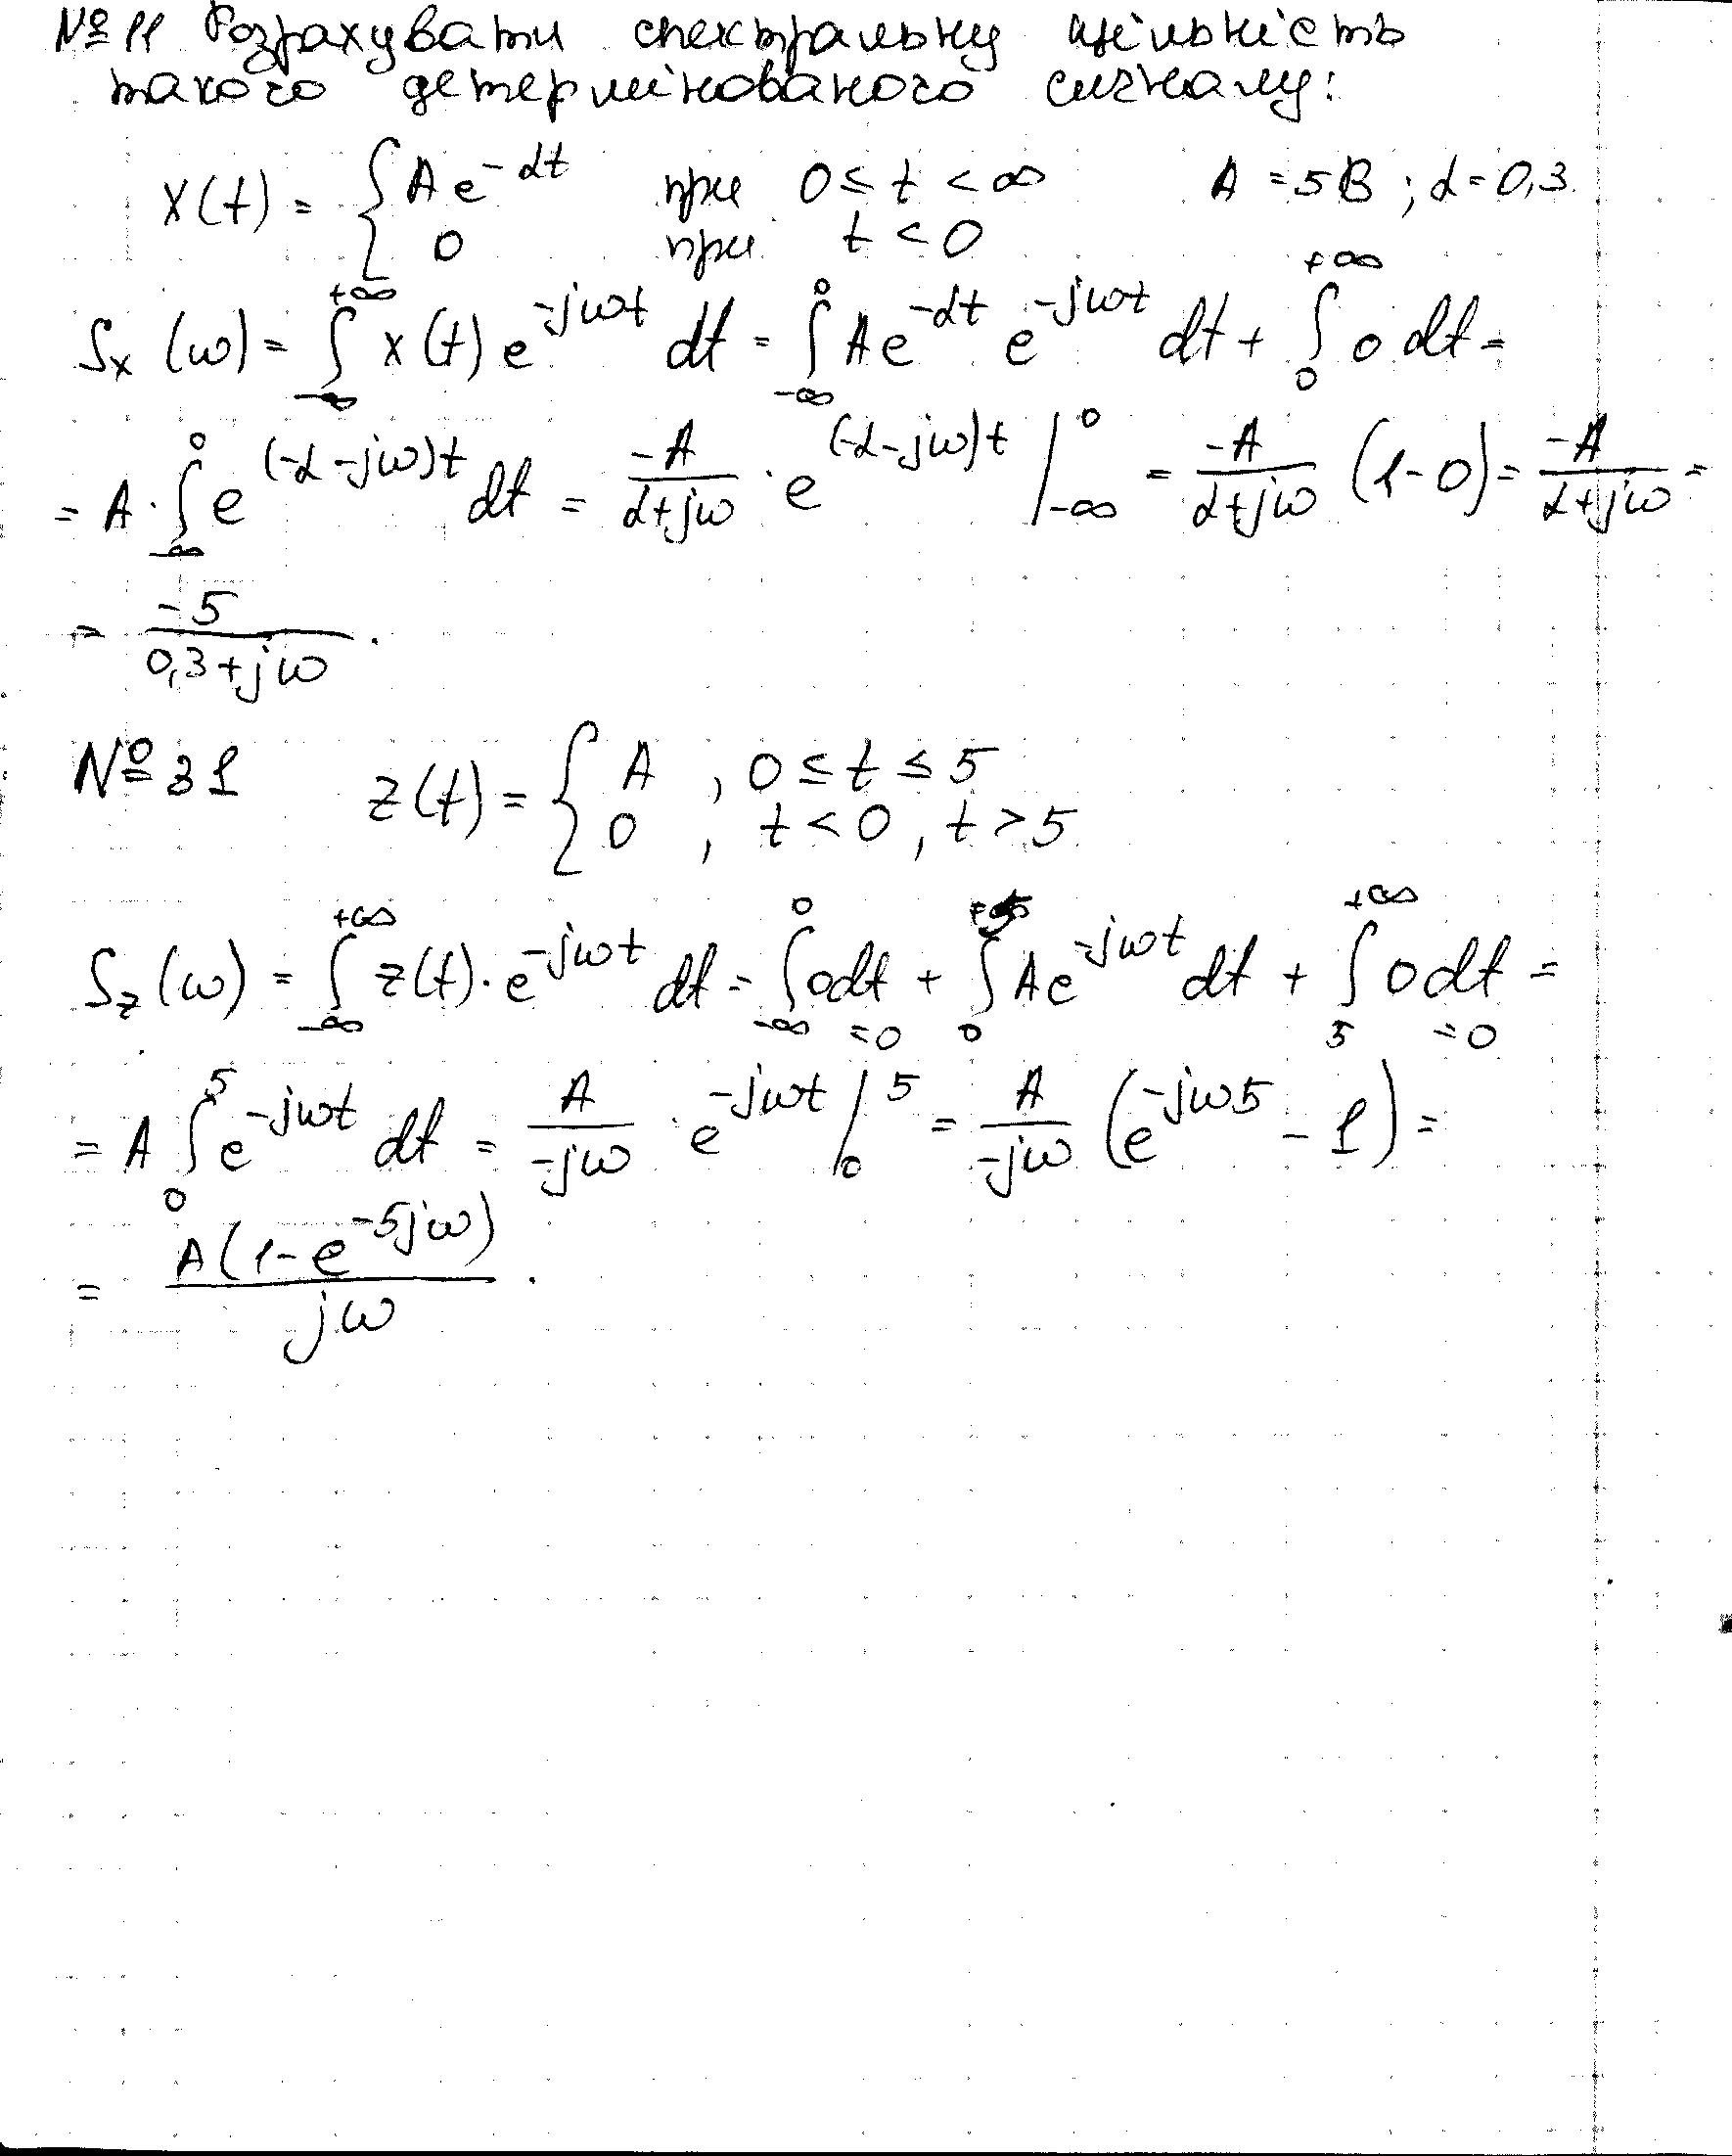 № 11 Розрахувати спектральну щільність
такого детермінованого сигналу:
x(t) = { A e^{-αt} при 0 ≤ t < ∞ A = 5В ; α = 0,3.
0 при t < 0
S_x (ω) = ∫_{-∞}^{+∞} x(t) e^{-jωt} dt = ∫_{-∞}^{0} A e^{-αt} e^{-jωt} dt + ∫_{0}^{+∞} 0 dt =
= A · ∫_{-∞}^{0} e^{(-α-jω)t} dt = \frac{-A}{α+jω} · e^{(-α-jω)t} |_{-∞}^{0} = \frac{-A}{α+jω} (1-0) = \frac{-A}{α+jω} =
= \frac{-5}{0,3+jω} .
№ 31 z(t) = { A , 0 ≤ t ≤ 5
0 , t < 0 , t > 5
S_z (ω) = ∫_{-∞}^{+∞} z(t) · e^{-jωt} dt = ∫_{-∞}^{0} 0dt + ∫_{0}^{5} A e^{-jωt} dt + ∫_{5}^{+∞} 0 dt =
=0 =0
= A ∫_{0}^{5} e^{-jωt} dt = \frac{A}{-jω} · e^{-jωt} |_{0}^{5} = \frac{A}{-jω} (e^{-jω5} - 1) =
= \frac{A(1-e^{-5jω})}{jω} .